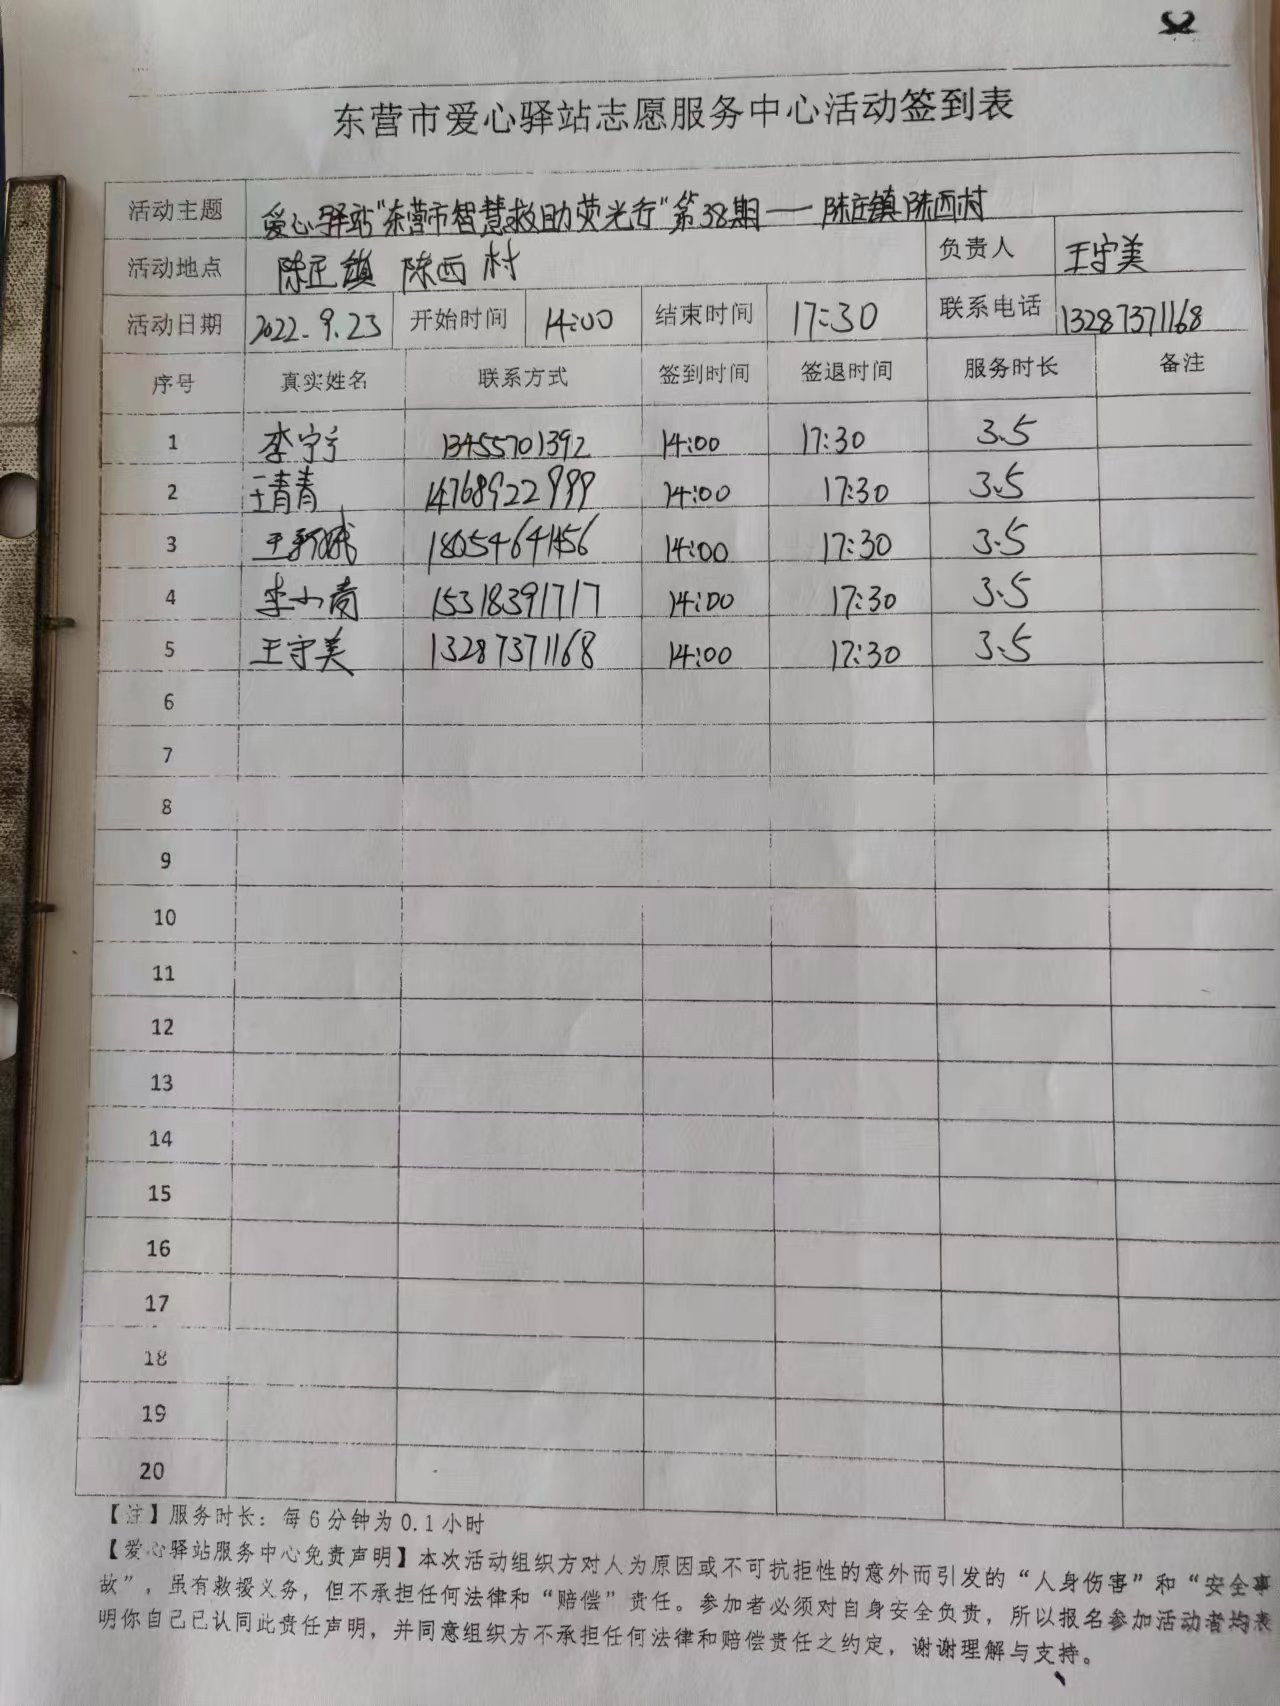 东营市爱心驿站志愿服务中心活动签到表
活动主题 爱心驿站"东营市智慧救助荧光行"第38期——陈庄镇陈西村
活动地点 陈庄镇 陈西村 负责人 王守美
活动日期 2022.9.23 开始时间 14:00 结束时间 17:30 联系电话 13287371168
序号 真实姓名 联系方式 签到时间 签退时间 服务时长 备注
1 李宁宁 13455701392 14:00 17:30 3.5
2 王青青 14768922999 14:00 17:30 3.5
3 王 18054641456 14:00 17:30 3.5
4 李小 15318391717 14:00 17:30 3.5
5 王守美 13287371168 14:00 17:30 3.5
6
7
8
9
10
11
12
13
14
15
16
17
18
19
20
【注】服务时长：每6分钟为0.1小时
【爱心驿站服务中心免责声明】本次活动组织方对人为原因或不可抗拒性的意外而引发的“人身伤害”和“安全事
故”，虽有救援义务，但不承担任何法律和“赔偿”责任。参加者必须对自身安全负责，所以报名参加活动者均表
明你自己已认同此责任声明，并同意组织方不承担任何法律和赔偿责任之约定，谢谢理解与支持。